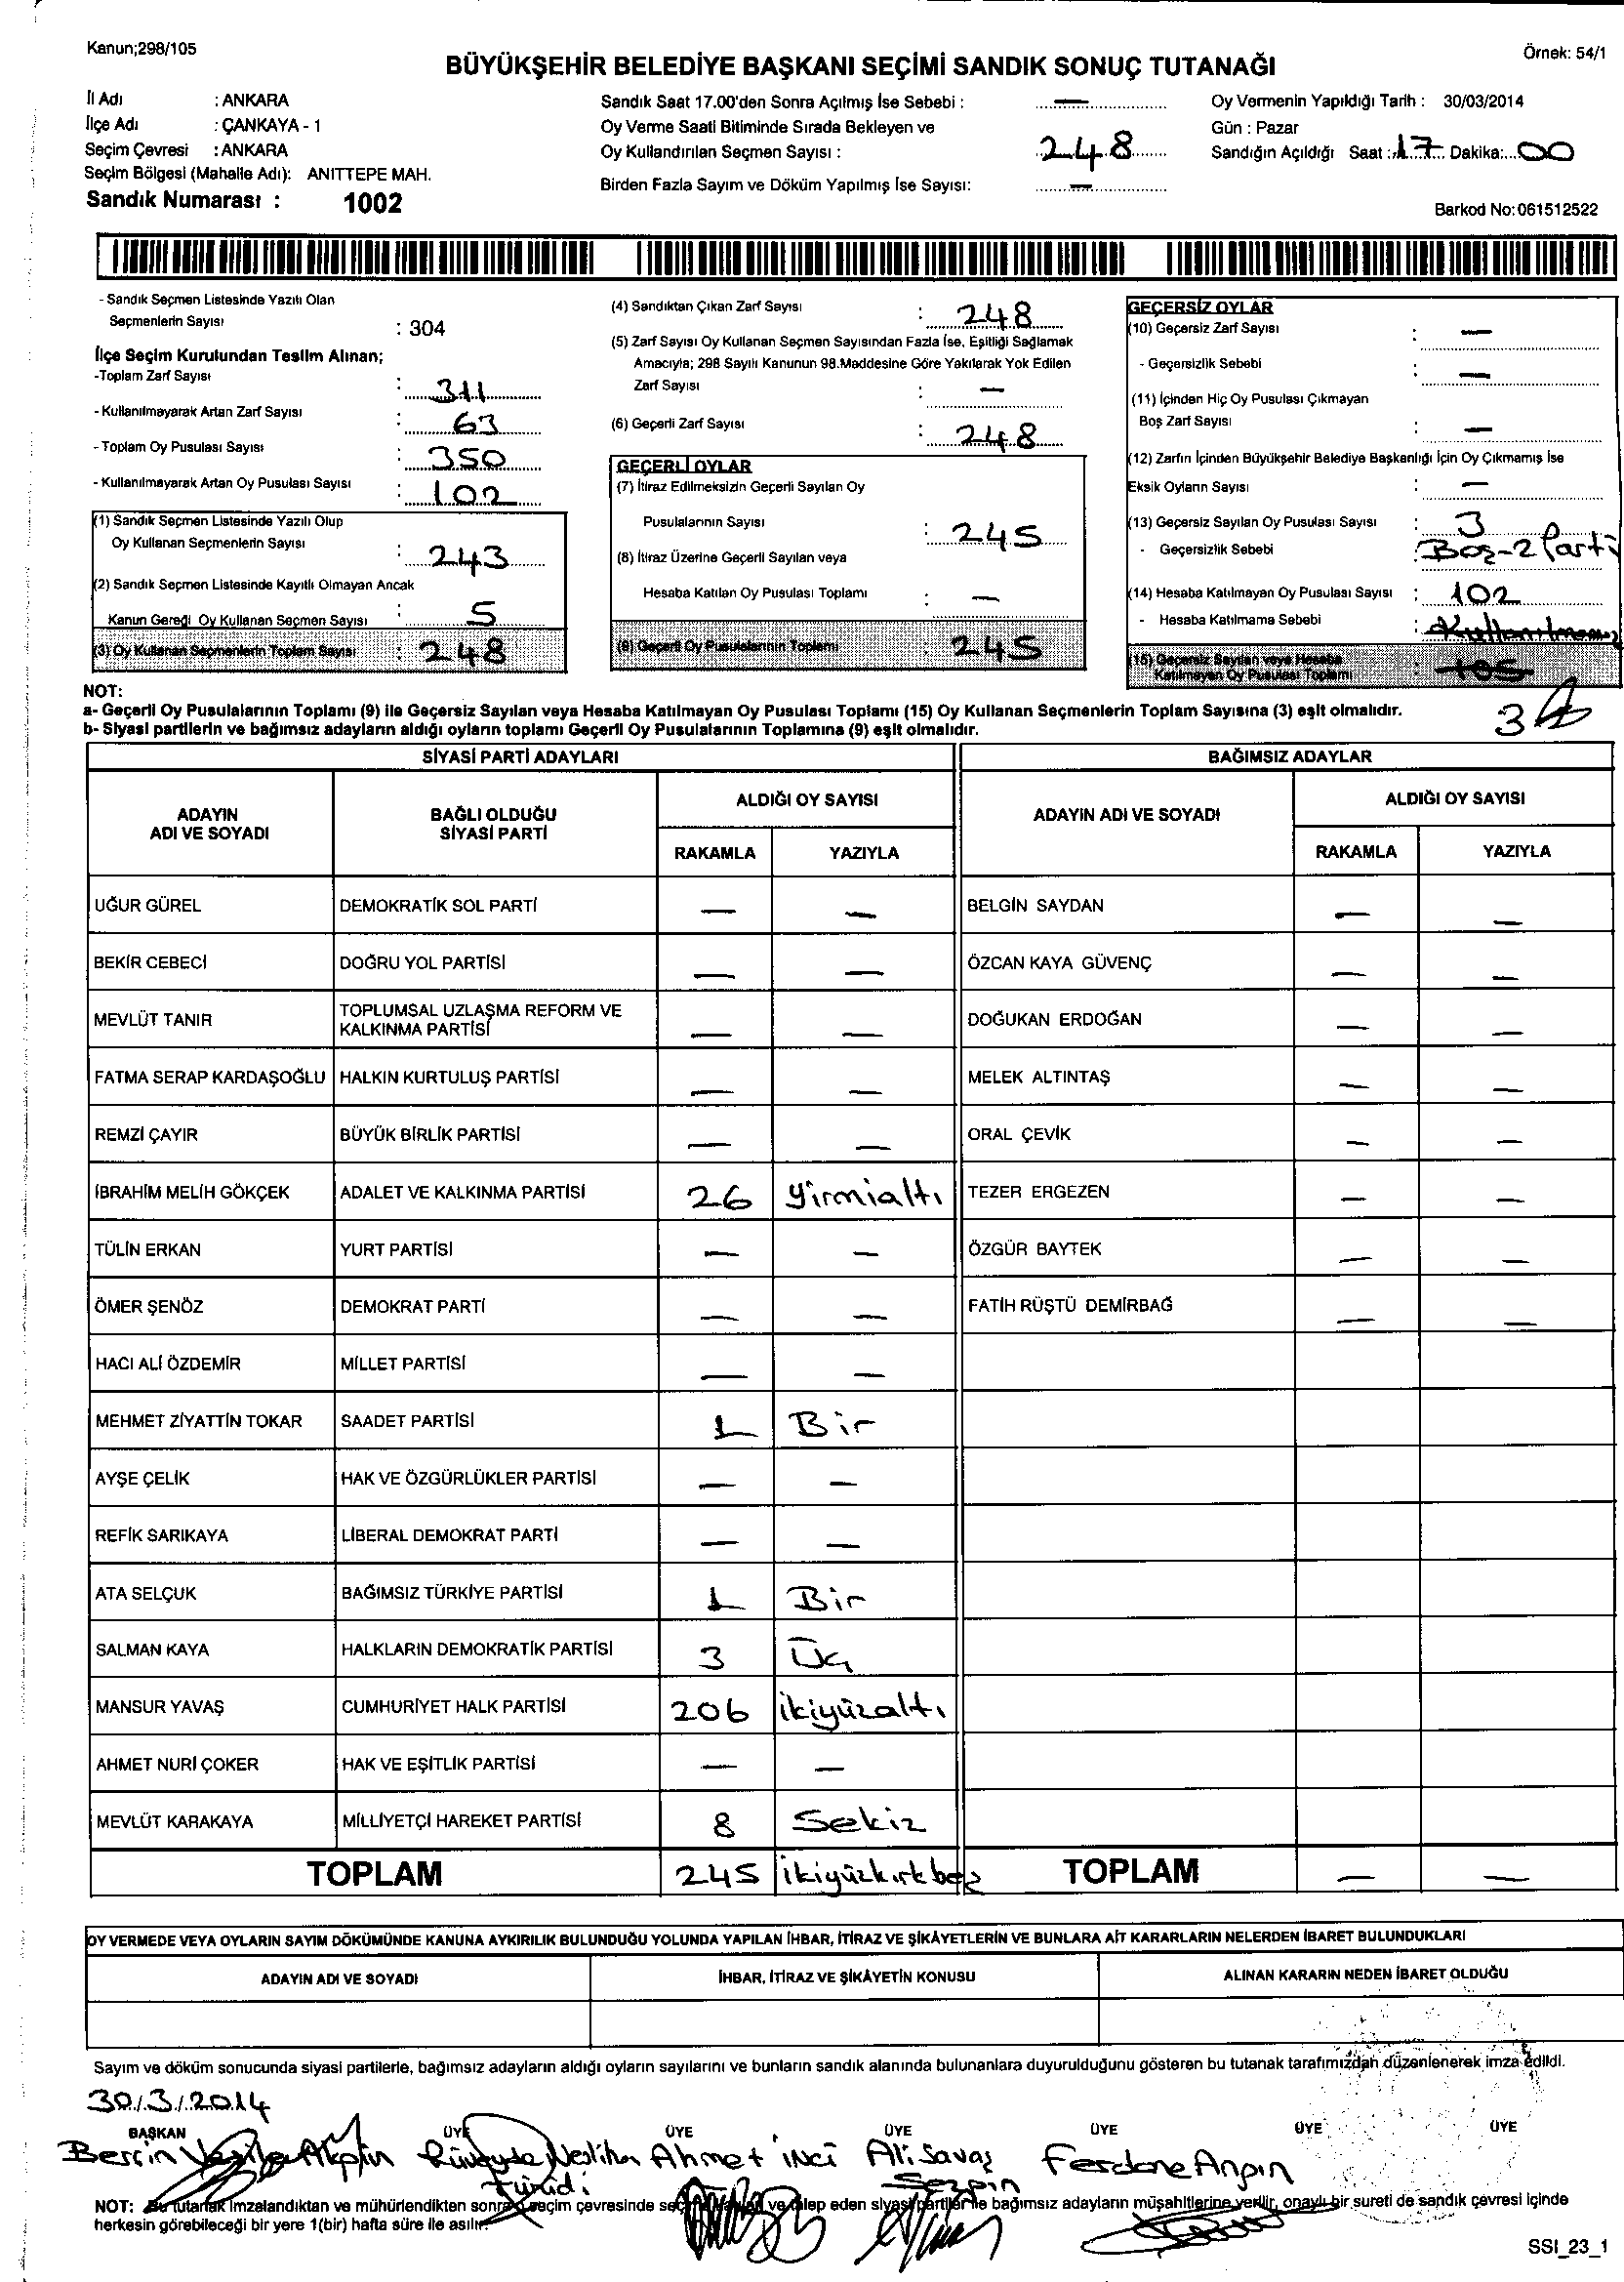 Kanun;298/105
Örnek: 54/1
BÜYÜKŞEHİR BELEDİYE BAŞKANI SEÇİMİ SANDIK SONUÇ TUTANAĞI
İl Adı : ANKARA
İlçe Adı : ÇANKAYA - 1
Seçim Çevresi : ANKARA
Seçim Bölgesi (Mahalle Adı): ANITTEPE MAH.
Sandık Numarası : 1002
Sandık Saat 17.00'den Sonra Açılmış İse Sebebi : —
Oy Verme Saati Bitiminde Sırada Bekleyen ve
Oy Kullandırılan Seçmen Sayısı : 248
Birden Fazla Sayım ve Döküm Yapılmış İse Sayısı: —
Oy Vermenin Yapıldığı Tarih : 30/03/2014
Gün : Pazar
Sandığın Açıldığı Saat : 17 Dakika: 00
Barkod No:061512522
- Sandık Seçmen Listesinde Yazılı Olan
Seçmenlerin Sayısı : 304
İlçe Seçim Kurulundan Teslim Alınan;
-Toplam Zarf Sayısı : 311
- Kullanılmayarak Artan Zarf Sayısı : 63
- Toplam Oy Pusulası Sayısı : 350
- Kullanılmayarak Artan Oy Pusulası Sayısı : 102
(1) Sandık Seçmen Listesinde Yazılı Olup
Oy Kullanan Seçmenlerin Sayısı : 243
(2) Sandık Seçmen Listesinde Kayıtlı Olmayan Ancak
Kanun Gereği Oy Kullanan Seçmen Sayısı : 5
(3) Oy Kullanan Seçmenlerin Toplam Sayısı : 248
(4) Sandıktan Çıkan Zarf Sayısı : 248
(5) Zarf Sayısı Oy Kullanan Seçmen Sayısından Fazla İse, Eşitliği Sağlamak
Amacıyla; 298 Sayılı Kanunun 98.Maddesine Göre Yakılarak Yok Edilen
Zarf Sayısı : —
(6) Geçerli Zarf Sayısı : 248
GEÇERLİ OYLAR
(7) İtiraz Edilmeksizin Geçerli Sayılan Oy
Pusulalarının Sayısı : 245
(8) İtiraz Üzerine Geçerli Sayılan veya
Hesaba Katılan Oy Pusulası Toplamı : —
(9) Geçerli Oy Pusulalarının Toplamı : 245
GEÇERSİZ OYLAR
(10) Geçersiz Zarf Sayısı : —
- Geçersizlik Sebebi : —
(11) İçinden Hiç Oy Pusulası Çıkmayan
Boş Zarf Sayısı : —
(12) Zarfın İçinden Büyükşehir Belediye Başkanlığı İçin Oy Çıkmamış İse
Eksik Oyların Sayısı : —
(13) Geçersiz Sayılan Oy Pusulası Sayısı : 3
- Geçersizlik Sebebi : Boş-2 Parti
(14) Hesaba Katılmayan Oy Pusulası Sayısı : 102
- Hesaba Katılmama Sebebi :
(15) Geçersiz Sayılan veya Hesaba
Katılmayan Oy Pusulası Toplamı : 105
3
NOT:
a- Geçerli Oy Pusulalarının Toplamı (9) ile Geçersiz Sayılan veya Hesaba Katılmayan Oy Pusulası Toplamı (15) Oy Kullanan Seçmenlerin Toplam Sayısına (3) eşit olmalıdır.
b- Siyasi partilerin ve bağımsız adayların aldığı oyların toplamı Geçerli Oy Pusulalarının Toplamına (9) eşit olmalıdır.
SİYASİ PARTİ ADAYLARI BAĞIMSIZ ADAYLAR
ADAYIN ADI VE SOYADI BAĞLI OLDUĞU SİYASİ PARTİ ALDIĞI OY SAYISI ADAYIN ADI VE SOYADI ALDIĞI OY SAYISI
RAKAMLA YAZIYLA RAKAMLA YAZIYLA
UĞUR GÜREL DEMOKRATİK SOL PARTİ — — BELGİN SAYDAN — —
BEKİR CEBECİ DOĞRU YOL PARTİSİ — — ÖZCAN KAYA GÜVENÇ — —
MEVLÜT TANIR TOPLUMSAL UZLAŞMA REFORM VE KALKINMA PARTİSİ — — DOĞUKAN ERDOĞAN — —
FATMA SERAP KARDAŞOĞLU HALKIN KURTULUŞ PARTİSİ — — MELEK ALTINTAŞ — —
REMZİ ÇAYIR BÜYÜK BİRLİK PARTİSİ — — ORAL ÇEVİK — —
İBRAHİM MELİH GÖKÇEK ADALET VE KALKINMA PARTİSİ 26 yirmialtı TEZER ERGEZEN — —
TÜLİN ERKAN YURT PARTİSİ — — ÖZGÜR BAYTEK — —
ÖMER ŞENÖZ DEMOKRAT PARTİ — — FATİH RÜŞTÜ DEMİRBAĞ — —
HACI ALİ ÖZDEMİR MİLLET PARTİSİ — —
MEHMET ZİYATTİN TOKAR SAADET PARTİSİ 1 Bir
AYŞE ÇELİK HAK VE ÖZGÜRLÜKLER PARTİSİ — —
REFİK SARIKAYA LİBERAL DEMOKRAT PARTİ — —
ATA SELÇUK BAĞIMSIZ TÜRKİYE PARTİSİ 1 Bir
SALMAN KAYA HALKLARIN DEMOKRATİK PARTİSİ 3 Üç
MANSUR YAVAŞ CUMHURİYET HALK PARTİSİ 206 ikiyüzaltı
AHMET NURİ ÇOKER HAK VE EŞİTLİK PARTİSİ — —
MEVLÜT KARAKAYA MİLLİYETÇİ HAREKET PARTİSİ 8 Sekiz
TOPLAM 245 ikiyüzkırkbeş TOPLAM — —
OY VERMEDE VEYA OYLARIN SAYIM DÖKÜMÜNDE KANUNA AYKIRILIK BULUNDUĞU YOLUNDA YAPILAN İHBAR, İTİRAZ VE ŞİKÂYETLERİN VE BUNLARA AİT KARARLARIN NELERDEN İBARET BULUNDUKLARI
ADAYIN ADI VE SOYADI İHBAR, İTİRAZ VE ŞİKÂYETİN KONUSU ALINAN KARARIN NEDEN İBARET OLDUĞU
Sayım ve döküm sonucunda siyasi partilerle, bağımsız adayların aldığı oyların sayılarını ve bunların sandık alanında bulunanlara duyurulduğunu gösteren bu tutanak tarafımızdan düzenlenerek imza edildi.
30/3/2014
BAŞKAN ÜYE ÜYE ÜYE ÜYE ÜYE ÜYE
Akpın Neslihan Ahmet inci Ali Savaş Ferdane Arpın
Sezgin
NOT: Bu tutanak imzalandıktan ve mühürlendikten sonra seçim çevresinde ve talep eden siyasi partiler ile bağımsız adayların müşahitlerine verilir, onaylı bir sureti de sandık çevresi içinde
herkesin görebileceği bir yere 1(bir) hafta süre ile asılır.
SSI_23_1